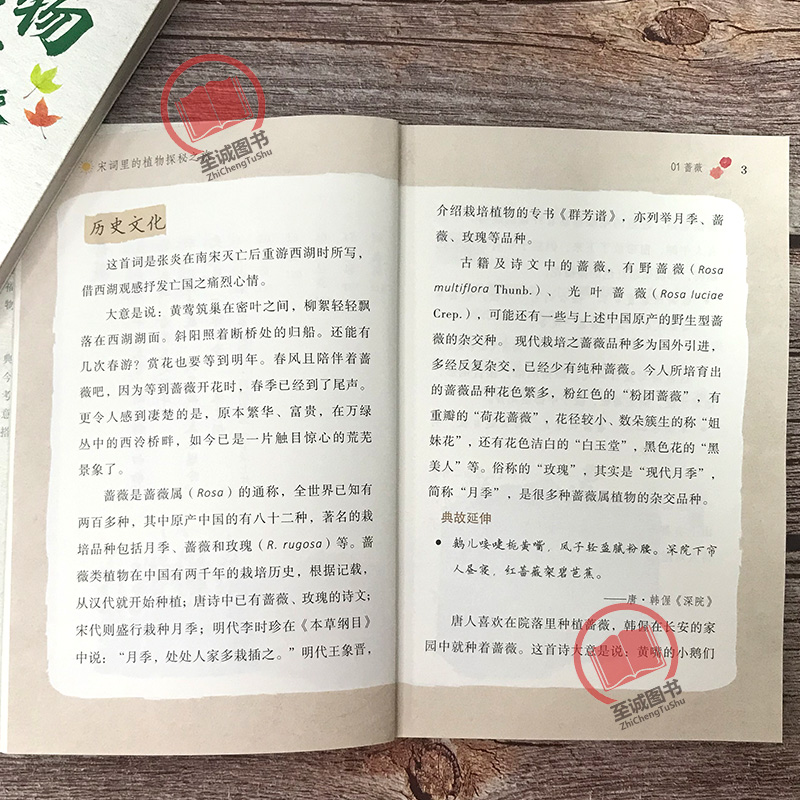 物
至诚图书
ZhiChengTuShu
宋词里的植物探秘之
历史文化
这首词是张炎在南宋灭亡后重游西湖时所写，
借西湖观感抒发亡国之痛烈心情。
大意是说：黄莺筑巢在密叶之间，柳絮轻轻飘
落在西湖湖面。斜阳照着断桥处的归船。还能有
几次春游？赏花也要等到明年。春风且陪伴着蔷
薇吧，因为等到蔷薇开花时，春季已经到了尾声。
更令人感到凄楚的是，原本繁华、富贵，在万绿
丛中的西泠桥畔，如今已是一片触目惊心的荒芜
景象了。
蔷薇是蔷薇属（Rosa）的通称，全世界已知有
两百多种，其中原产中国的有八十二种，著名的栽
培品种包括月季、蔷薇和玫瑰（R. rugosa）等。蔷
薇类植物在中国有两千年的栽培历史，根据记载，
从汉代就开始种植；唐诗中已有蔷薇、玫瑰的诗文；
宋代则盛行栽种月季；明代李时珍在《本草纲目》
中说：“月季，处处人家多栽插之。”明代王象晋，
01 蔷薇
3
介绍栽培植物的专书《群芳谱》，亦列举月季、蔷
薇、玫瑰等品种。
古籍及诗文中的蔷薇，有野蔷薇（Rosa
multiflora Thunb.）、光叶蔷薇（Rosa luciae
Crep.），可能还有一些与上述中国原产的野生型蔷
薇的杂交种。现代栽培之蔷薇品种多为国外引进，
多经反复杂交，已经少有纯种蔷薇。今人所培育出
的蔷薇品种花色繁多，粉红色的“粉团蔷薇”，有
重瓣的“荷花蔷薇”，花径较小、数朵簇生的称“姐
妹花”，还有花色洁白的“白玉堂”，黑色花的“黑
美人”等。俗称的“玫瑰”，其实是“现代月季”，
简称“月季”，是很多种蔷薇属植物的杂交品种。
典故延伸
鹅儿唼啑栀黄嘴，凤子轻盈腻粉腰。深院下帘
人昼寝，红蔷薇架碧芭蕉。
——唐·韩偓《深院》
唐人喜欢在院落里种植蔷薇，韩偓在长安的家
园中就种着蔷薇。这首诗大意是说：黄嘴的小鹅们
至诚图书
ZhiChengTuShu